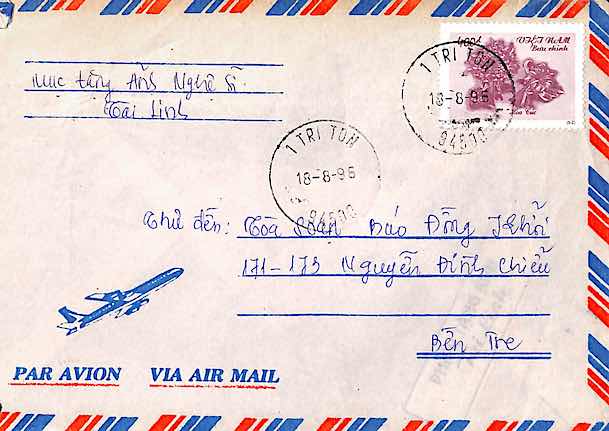 Mục tặng Ảnh Nghệ Sĩ
Tài Linh
400đ
VIỆT NAM
Bưu chính
Hoa Cúc
1 TRI TON
18-8-96
94500
1 TRI TON
18-8-96
94500
Thư đến: Tòa Soạn Báo Đồng Khởi
171-173 Nguyễn Đình Chiểu
Bến Tre
PAR AVION VIA AIR MAIL